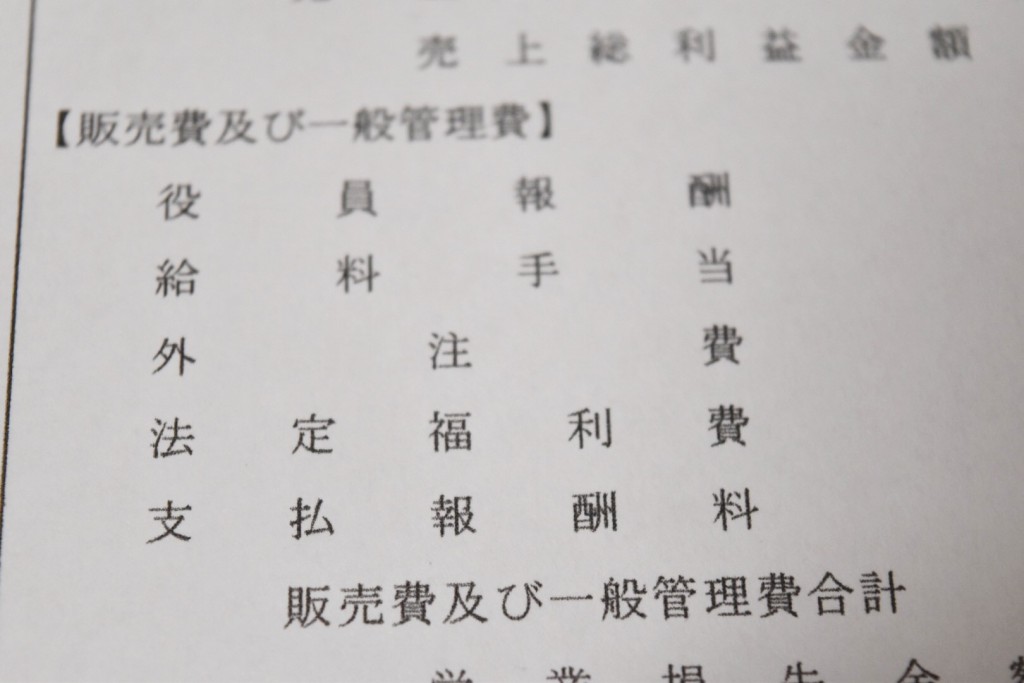 売上総利益金額
【販売費及び一般管理費】
役員報酬
給料手当
外注費
法定福利費
支払報酬料
販売費及び一般管理費合計
営業損失金額